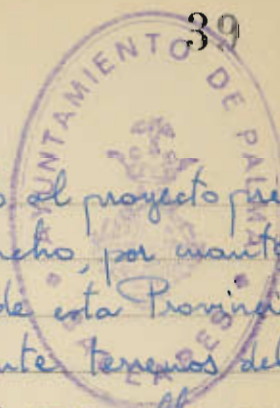 39
AYUNTAMIENTO DE PALMA
BALEARES
o al proyecto pre
cho, por cuanto
de esta Provinci
nte terrenos del